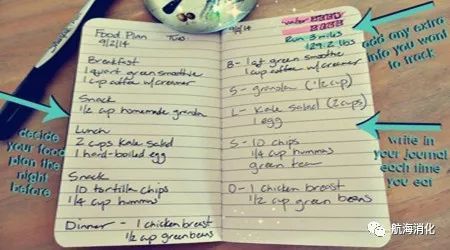 Food Plan
Tues
9/2/14
Breakfast
1 quart green smoothie
1 cup coffee w/creamer
Snack
1/2 cup homemade granola
Lunch
2 cups kale salad
1 hard-boiled egg
Snack
10 tortilla chips
1/4 cup hummus
Dinner - 1 chicken breast
1/2 cup green beans
9/2/14
water
Run 3 miles
129.2 lbs
B- 1 qt green smoothie
1 cup coffee w/creamer
S- granola (1/2 cup)
L- Kale Salad (2 cups)
1 egg
S- 10 chips
1/4 cup hummus
green tea
D- 1 chicken breast
1/2 cup green beans
decide
your food
plan the
night
before
add any extra
info you want
to track
write in
your journal
each time
you eat
航海消化